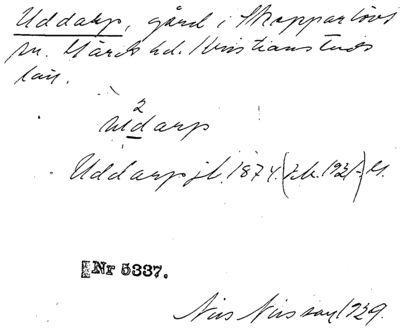 Uddarp, gård i Skepparlövs
sn. Gärds hd. Kristianstads
län.
2
uddarp
Uddarp jb. 1874.
Nr 5337.
Nils Nilsson 1929.